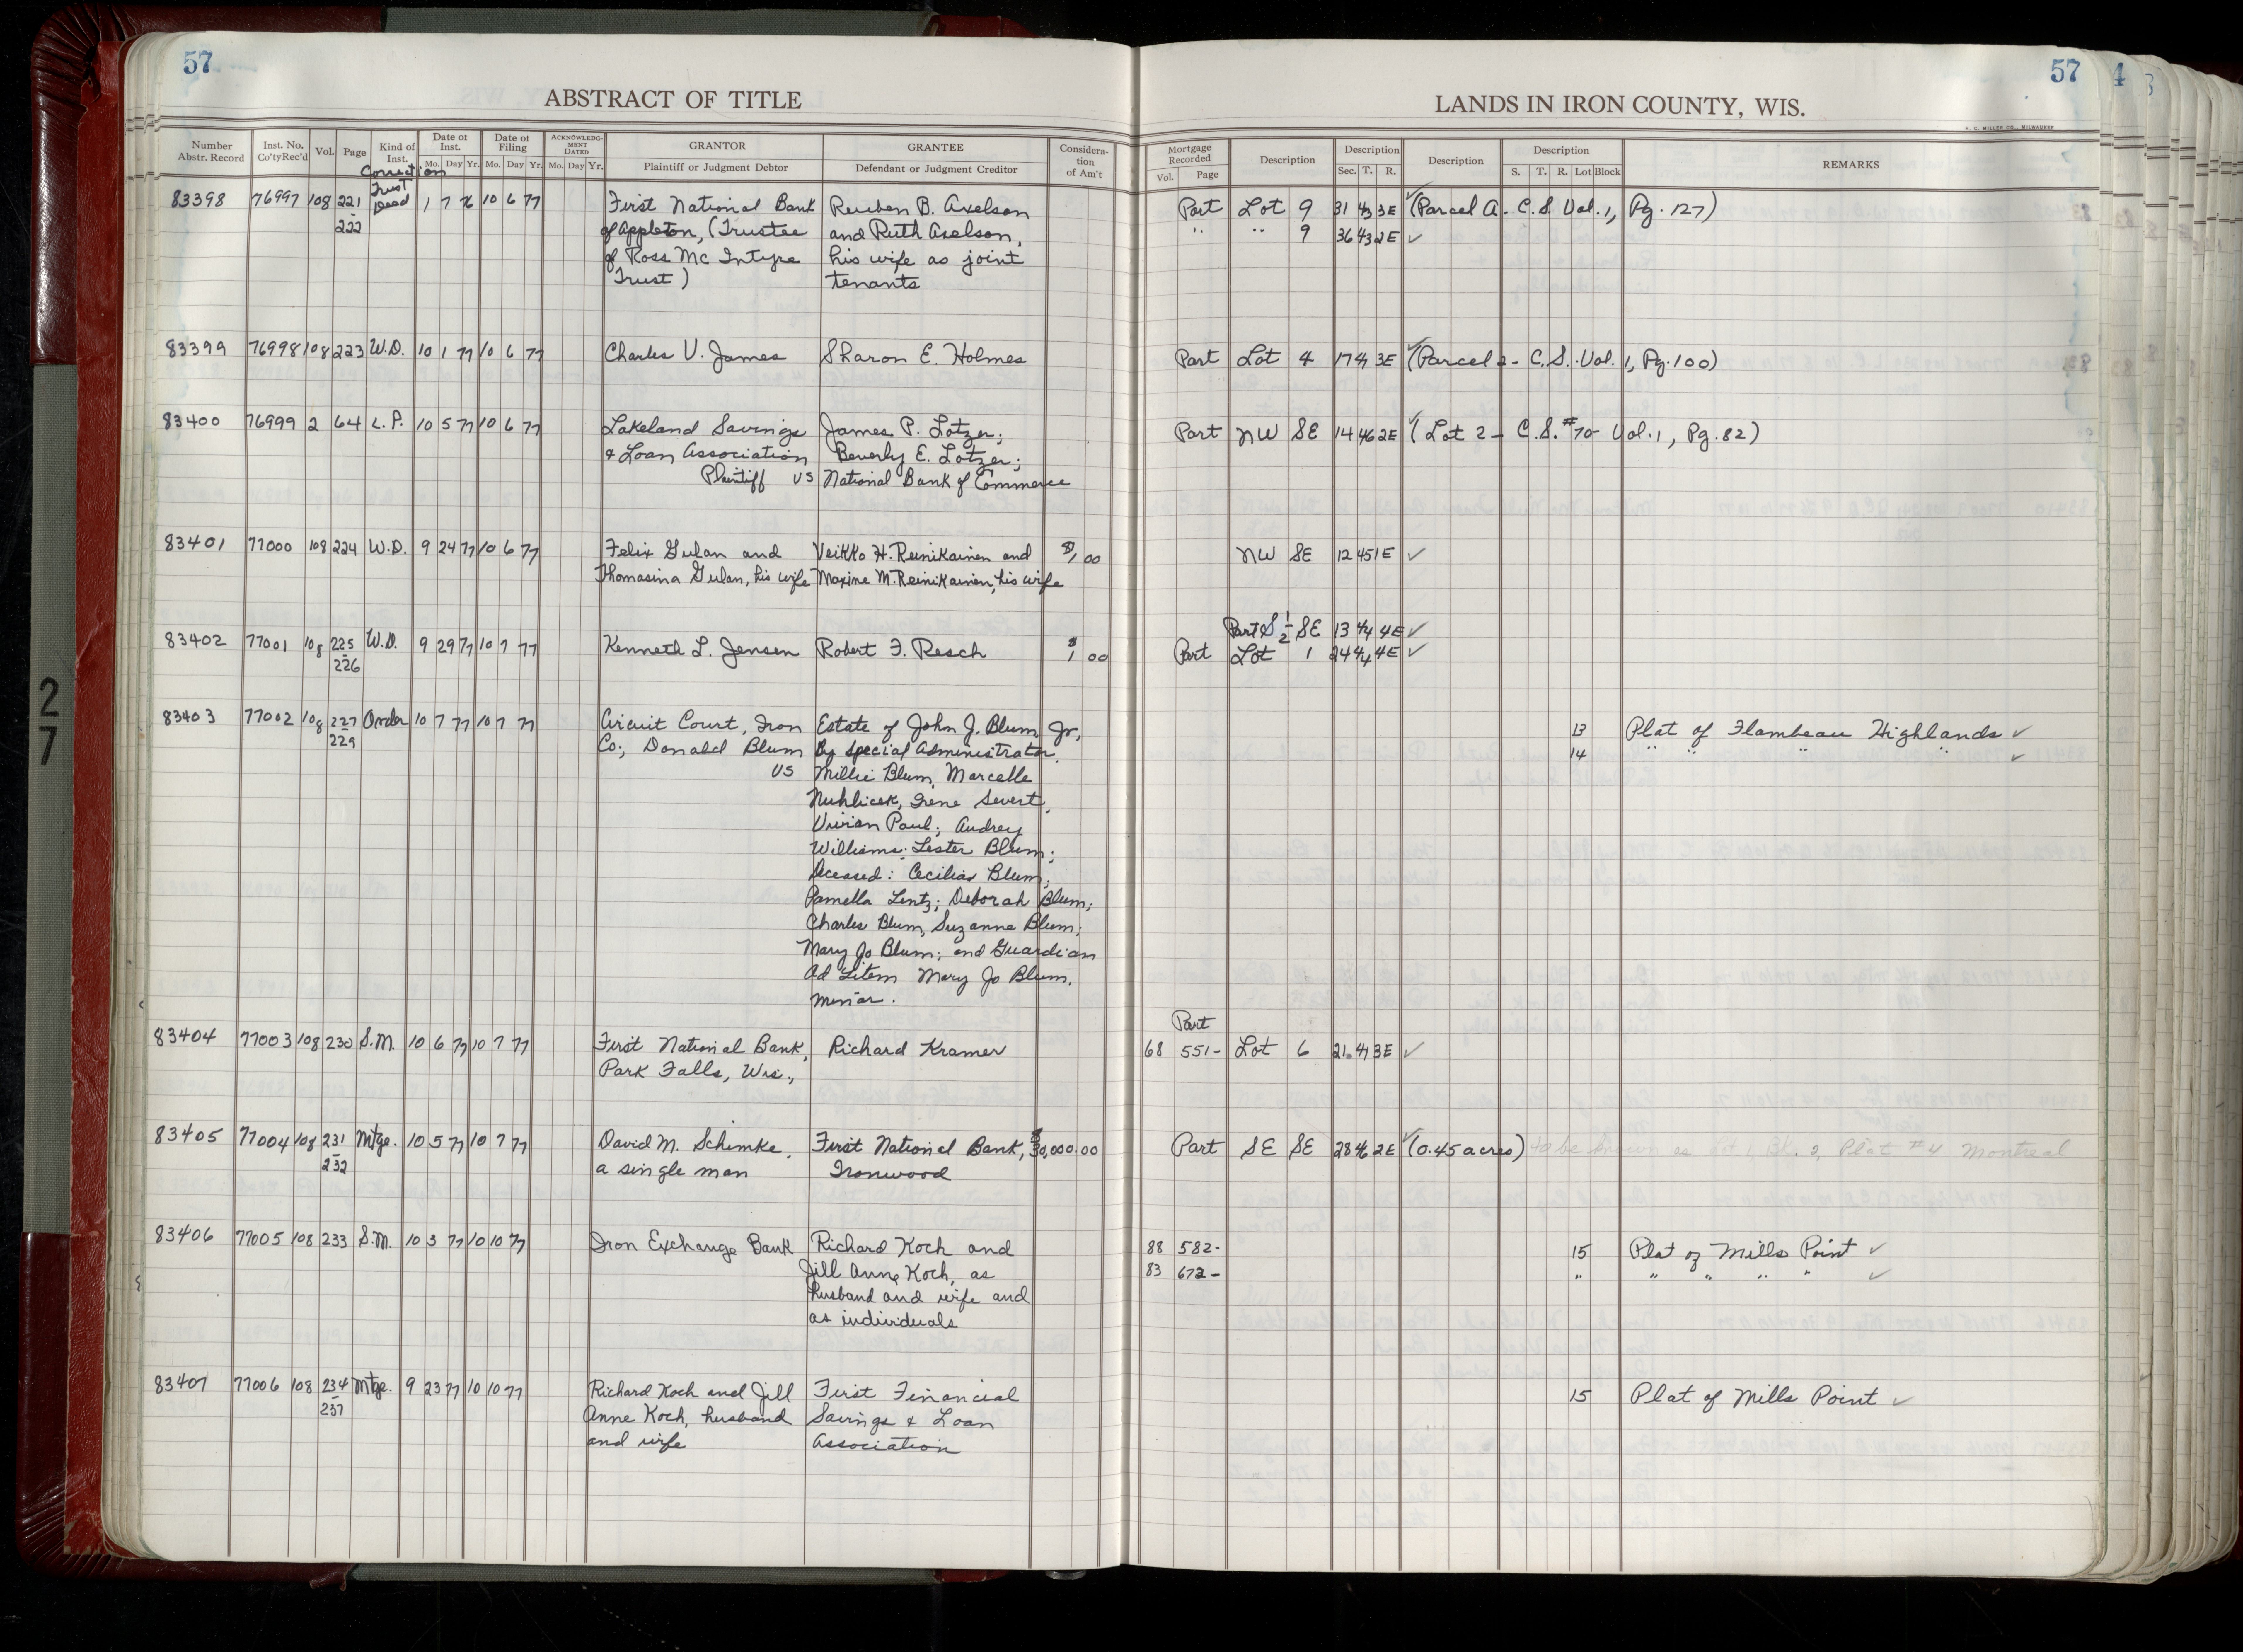 57
ABSTRACT OF TITLE
Number Abstr. Record
Inst. No. Co'ty Rec'd
Vol.
Page
Kind of Inst.
Date of Inst.
Mo. Day Yr.
Date of Filing
Mo. Day Yr.
ACKNOWLEDGMENT DATED
Mo. Day Yr.
GRANTOR
Plaintiff or Judgment Debtor
GRANTEE
Defendant or Judgment Creditor
Consideration of Am't
Correction
83398 76997 108 221 Trust Deed 1 7 76 10 6 77 First National Bank Reuben B. Axelson
222 of Appleton, (Trustee and Ruth Axelson,
of Ross Mc Intyre his wife as joint
Trust) tenants
83399 76998 108 223 W.D. 10 1 77 10 6 77 Charles V. James Sharon E. Holmes
83400 76999 2 64 L.P. 10 5 77 10 6 77 Lakeland Savings James P. Lotzer;
& Loan Association Beverly E. Lotzer;
Plaintiff VS National Bank of Commerce
83401 77000 108 224 W.D. 9 24 77 10 6 77 Felix Gulan and Veikko H. Reinikainen and $1,00
Thomasina Gulan, his wife Maxine M. Reinikainen, his wife
83402 77001 108 225 W.D. 9 29 77 10 7 77 Kenneth L. Jensen Robert F. Resch $1 00
226
83403 77002 108 227 Order 10 7 77 10 7 77 Circuit Court, Iron Estate of John J. Blum, Jr,
229 Co., Donald Blum By Special Administrator,
VS Millie Blum, Marcella
Nuhlicek, Irene Severt,
Vivian Paul; Audrey
Williams; Lester Blum;
Deceased: Cecilia Blum;
Pamella Lentz; Deborah Blum;
Charles Blum, Suzanne Blum;
Mary Jo Blum; and Guardian
Ad Litem Mary Jo Blum,
minor.
83404 77003 108 230 S.M. 10 6 77 10 7 77 First National Bank, Richard Kramer
Park Falls, Wis.,
83405 77004 108 231 Mtge. 10 5 77 10 7 77 David M. Schimke, First National Bank, $30,000.00
232 a single man Ironwood
83406 77005 108 233 S.M. 10 3 77 10 10 77 Iron Exchange Bank Richard Koch and
Jill Anne Koch, as
husband and wife and
as individuals
83407 77006 108 234 Mtge. 9 23 77 10 10 77 Richard Koch and Jill First Financial
237 Anne Koch, husband Savings & Loan
and wife Association
57
4
LANDS IN IRON COUNTY, WIS.
H. C. MILLER CO., MILWAUKEE
Mortgage Recorded
Vol. Page
Description
Description
Sec. T. R.
Description
Description
S. T. R. Lot Block
REMARKS
Part Lot 9 31 43 3E ✓ (Parcel A - C.S. Vol. 1, Pg. 127)
" " 9 36 43 2E ✓
Part Lot 4 17 41 3E ✓ (Parcel 2 - C.S. Vol. 1, Pg. 100)
Part NW SE 14 46 2E ✓ (Lot 2 - C.S. #70 - Vol. 1, Pg. 82)
NW SE 12 45 1E ✓
Part S 1/2 SE 13 44 4E ✓
Part Lot 1 24 44 4E ✓
13 Plat of Flambeau Highlands ✓
14 " " " " ✓
Part
68 551- Lot 6 21 41 3E ✓
Part SE SE 28 46 2E ✓ (0.45 acres) to be known as Lot 1, Blk. 2, Plat #4 Montreal
88 582- 15 Plat of Mills Point ✓
83 672- " " " " " ✓
15 Plat of Mills Point ✓
27